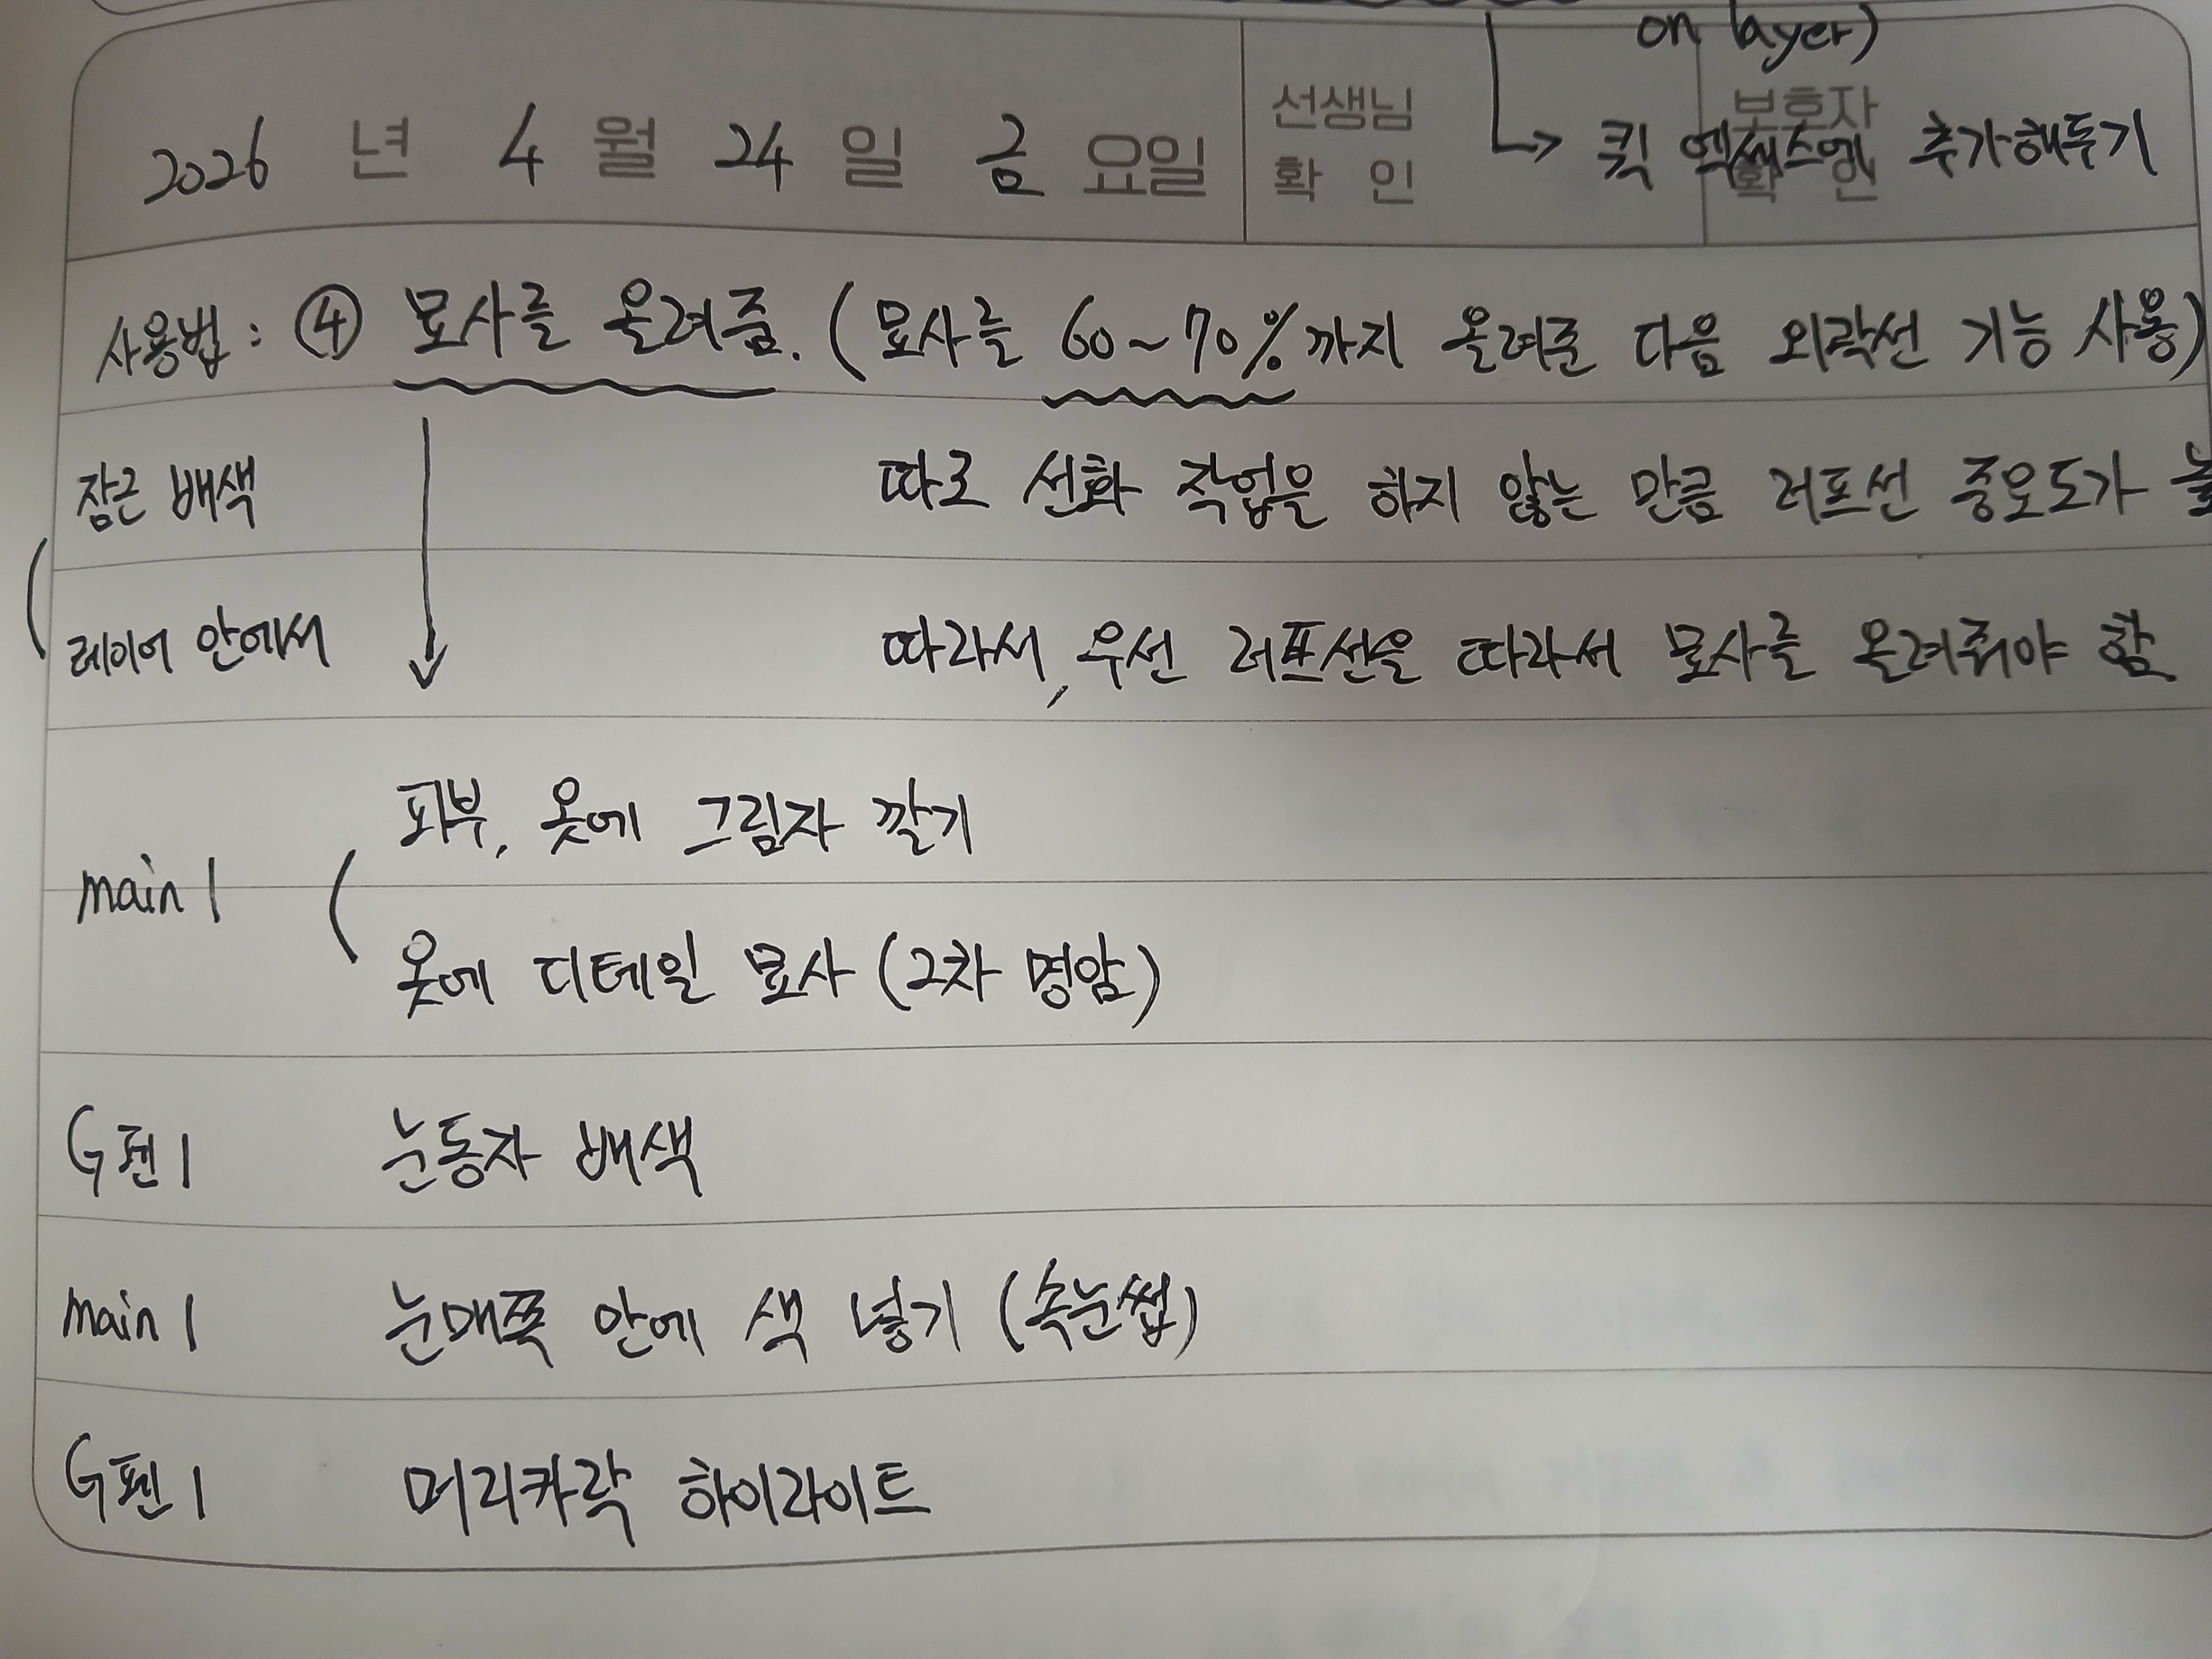 on layer)
2026 년 4 월 24 일 금 요일 선생님 확 인 보호자 확 인
퀵 엑세스에 추가해두기
사용법 : ④ 묘사를 올려줌. (묘사를 60~70%까지 올려준 다음 외곽선 기능 사용)
잠근 배색 따로 선화 작업을 하지 않는 만큼 러프선 중요도가
레이어 안에서 따라서, 우선 러프선을 따라서 묘사를 올려줘야 함
피부, 옷에 그림자 깔기
main 1
옷에 디테일 묘사 (2차 명암)
G펜 1 눈동자 배색
main 1 눈매쪽 안에 색 넣기 (속눈썹)
G펜 1 머리카락 하이라이트